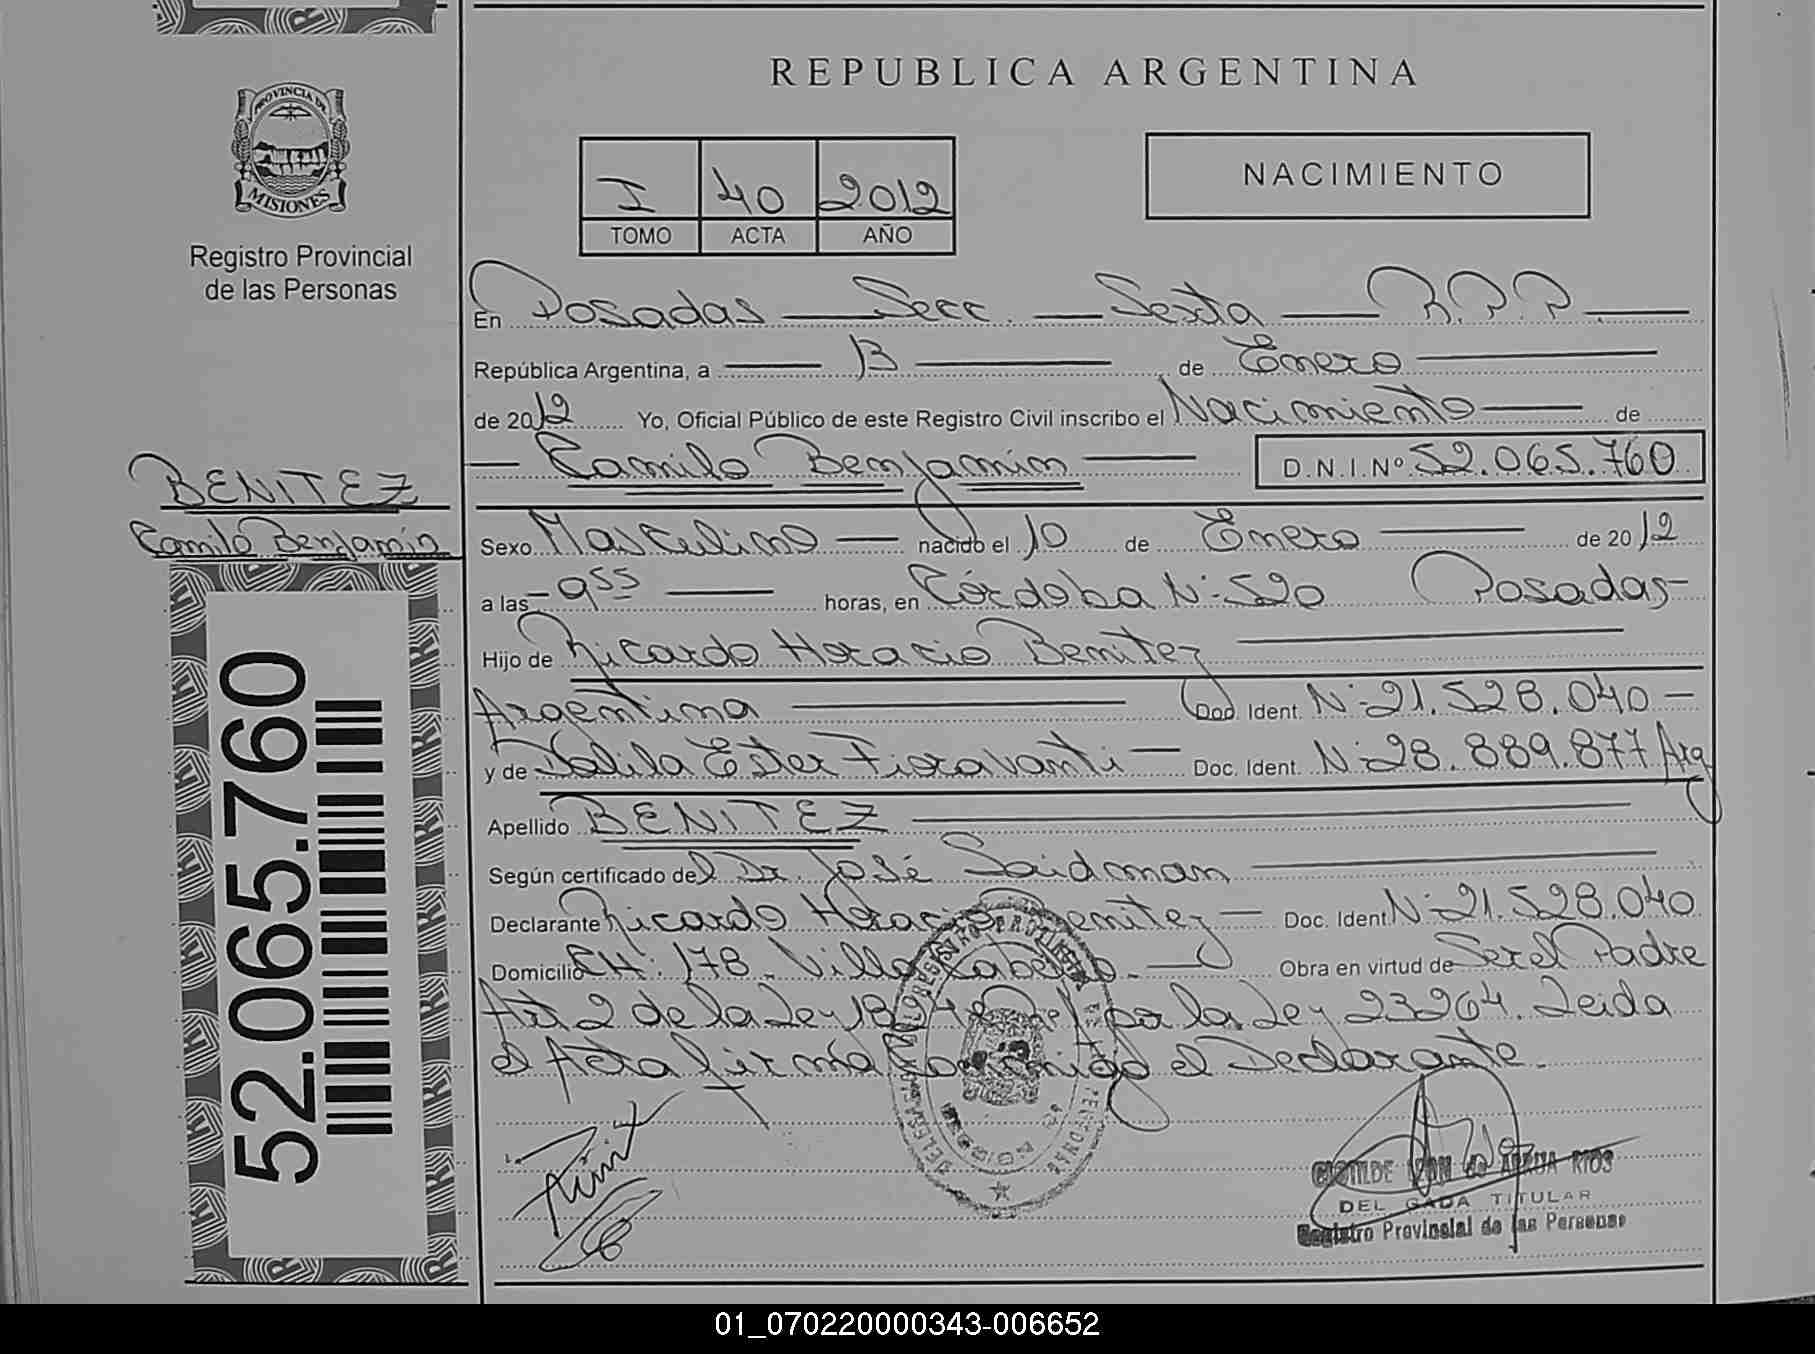 REPUBLICA ARGENTINA
PROVINCIA DE
MISIONES
Registro Provincial
de las Personas
I 40 2012
TOMO ACTA AÑO
NACIMIENTO
En Posadas Secc. Sexta R.P.P.
República Argentina, a 13 de Enero
de 2012 Yo, Oficial Público de este Registro Civil inscribo el Nacimiento de
Camilo Benjamín D.N.I.Nº 52.065.760
BENITEZ
Camilo Benjamín
Sexo Masculino nacido el 10 de Enero de 2012
a las 9 55 horas, en Córdoba Nº 520 Posadas
Hijo de Ricardo Horacio Benitez
Argentina Doc. Ident. Nº 21.528.040
y de Dalila Ester Fioravanti Doc. Ident. Nº 28.889.877 Arg
Apellido BENITEZ
Según certificado del Dr. José Saidman
Declarante Ricardo Horacio Benitez Doc. Ident. Nº 21.528.040
Domicilio CH: 178. Villa Cabello. Obra en virtud de Ser el Padre
Art 2 de la Ley por la Ley 23264. Leida
el Acta firma conmigo el Declarante.
52.065.760
CLOTILDE de ARRUA RIOS
DELEGADA TITULAR
Registro Provincial de las Personas
01_070220000343-006652